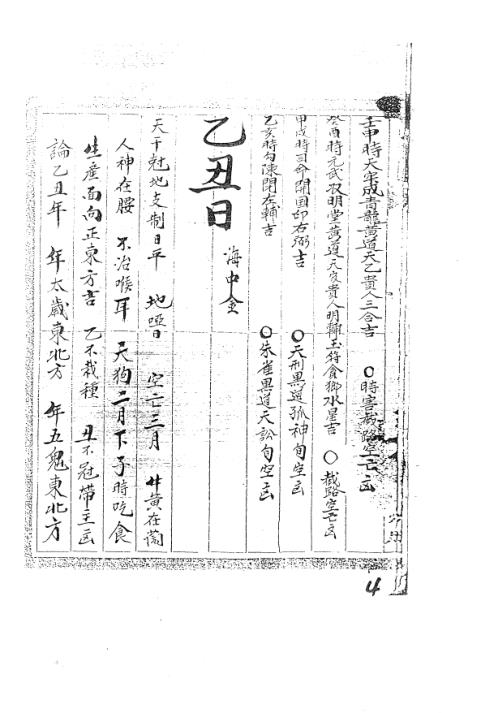 壬申時天牢成青龍黃道天乙貴人三合吉 〇時害截路空亡凶
癸酉時元武双明堂黃道天官貴人明輔玉符食鄉水星吉 〇截路空亡凶
甲戌時司命開国印右弼吉 〇天刑黑道孤神旬空凶
乙亥時勾陳閉左輔吉 〇朱雀黑道天訟旬空凶
乙丑日 海中金
天干尅地支制日平 地啞日 空亡三月 廿黃在
人神在腰 不治喉耳 天狗二月下子時吃食
生產面向正東方吉 乙不栽種 丑不冠帶主凶
論乙丑年 年太歲東北方 年五鬼東北方
4